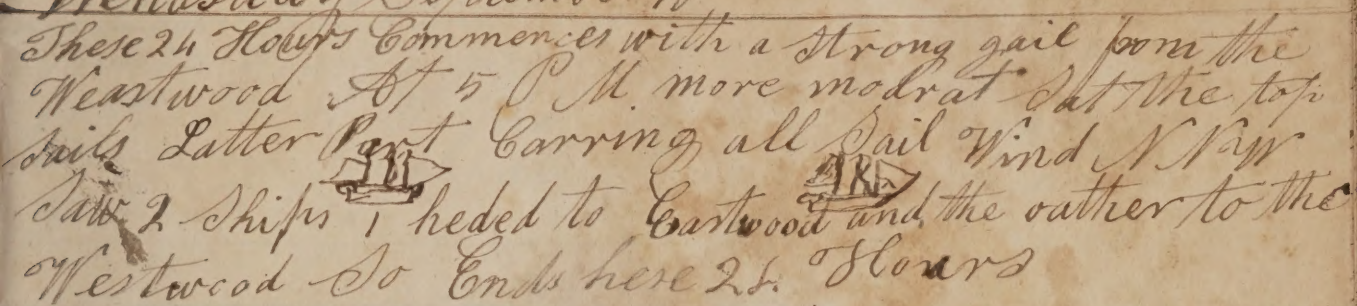 These 24 Hours Commences with a Strong gail from the
Weastwood At 5 P M more modrat Sat the top
Sails Latter Part Carring all Sail Wind N
Saw 2 Ships 1 heded to Eastwood and the oather to the
Westwood So Ends these 24 Hours